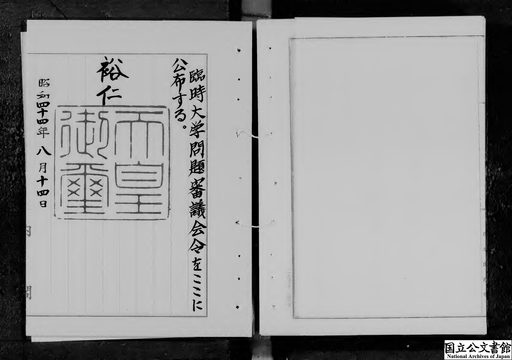 臨時大学問題審議会令をここに
公布する。
裕仁
天皇
御璽
昭和四十四年八月十四日
内
閣
国立公文書館
National Archives of Japan